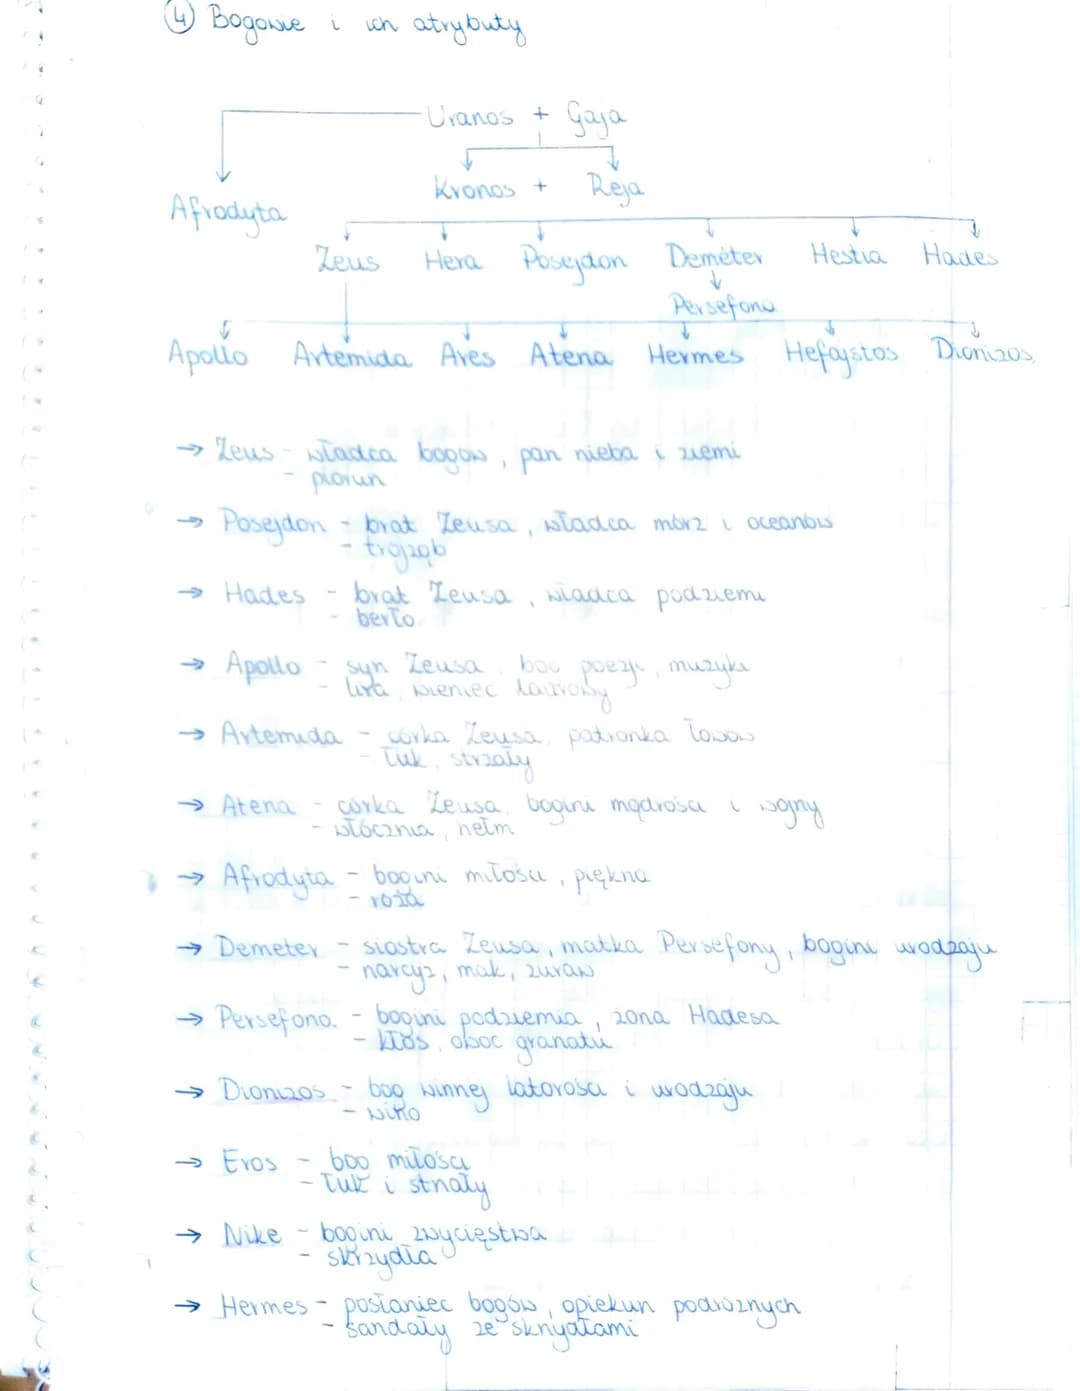 4 Bogowie i ich atrybuty
Uranos + Gaja
Kronos + Reja
Afrodyta
Zeus Hera Posejdon Demeter Hestia Hades
Persefona
Apollo Artemida Ares Atena Hermes Hefajstos Dionizos
→ Zeus - władca bogów, pan nieba i ziemi
- piorun
→ Posejdon - brat Zeusa, władca mórz i oceanów
- trójząb
→ Hades - brat Zeusa, władca podziemi
- berło
→ Apollo - syn Zeusa, bóg poezji, muzyki
- lira, wieniec laurowy
→ Artemida - córka Zeusa, patronka łowów
- łuk, strzały
→ Atena - córka Zeusa, bogini mądrości i wojny
- włócznia, hełm
→ Afrodyta - bogini miłości, piękna
- róża
→ Demeter - siostra Zeusa, matka Persefony, bogini urodzaju
- narcyz, mak, żuraw
→ Persefona - bogini podziemia, żona Hadesa
- kłos, owoc granatu
→ Dionizos - bóg winnej latorości i urodzaju
- wino
→ Eros - bóg miłości
- łuk i strzały
→ Nike - bogini zwycięstwa
- skrzydła
→ Hermes - posłaniec bogów, opiekun podróżnych
- sandały ze skrzydłami